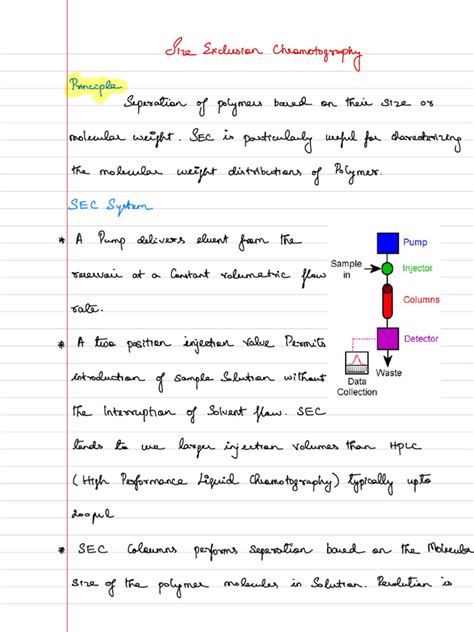 Size Exclusion Cheomotography
Principle
Seperation of polymers based on their size or
molecular weight. SEC is particularly useful for charecterizing
the molecular weight distributions of Polymer.
SEC System
* A Pump delivers eluent from the
reservoir at a Constant volumetric flow
rate.
Pump
Sample in
Injector
Columns
Detector
Waste
Data Collection
* A two position injection valve Permits
introduction of sample Solution without
the Interruption of Solvent flow. SEC
tends to use larger injection volumes than HPLC
(High Performance Liquid Cheomotography) typically upto
200μl
* SEC Coloumns performs seperation based on the Molecular
size of the polymer molecules in Solution. Resolution is